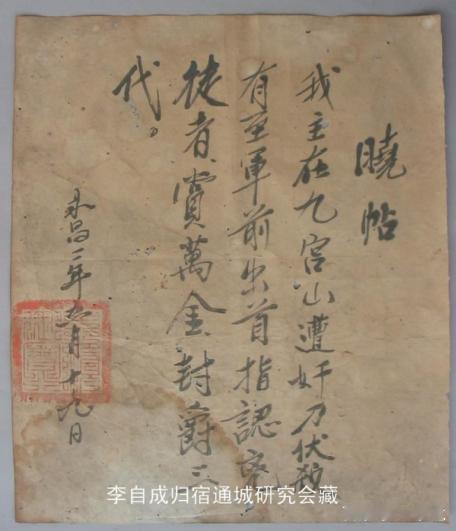 曉帖
我主在九宮山遭奸刀伏
有至軍前出首指認
徒者賞萬金封爵三
代。
永昌二年五月十九日
李自成归宿通城研究会藏